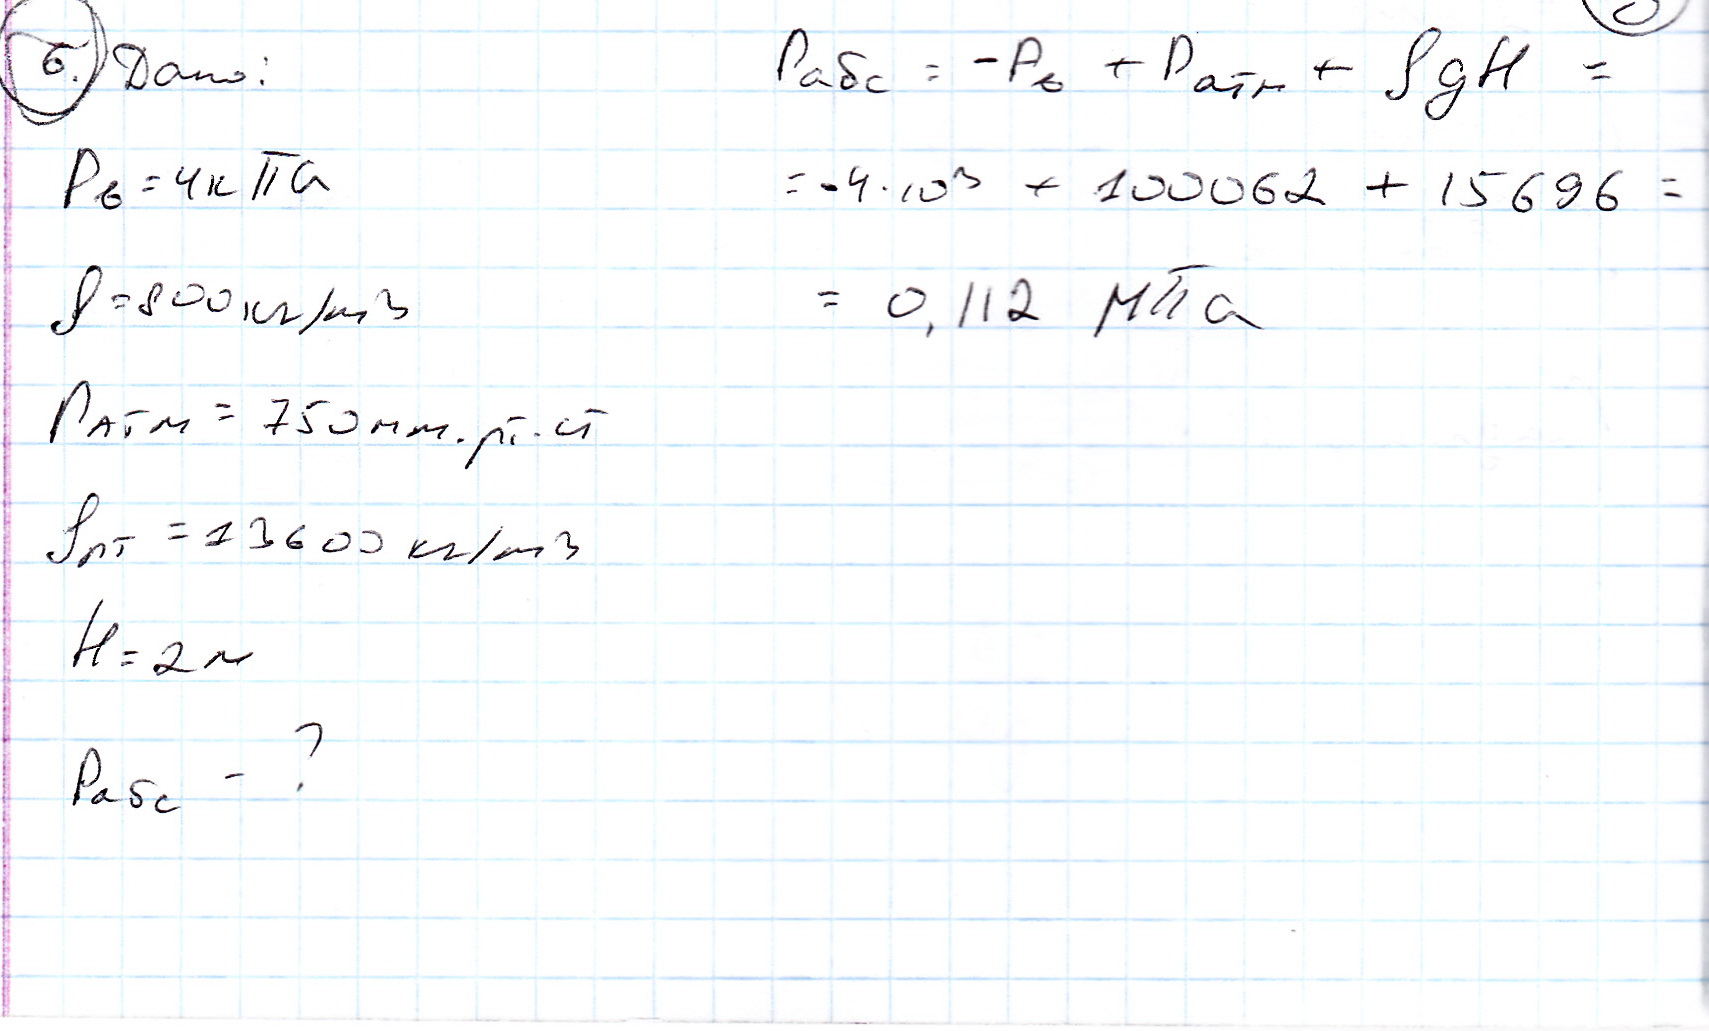 6. Дано:
Pв = 4кПа
ρ = 800кг/м3
Pатм = 750мм.рт.ст
ρрт = 13600 кг/м3
H = 2м
Pабс - ?
Pабс = -Pв + Pатм + ρgH =
= -4·10³ + 100062 + 15696 =
= 0,112 МПа